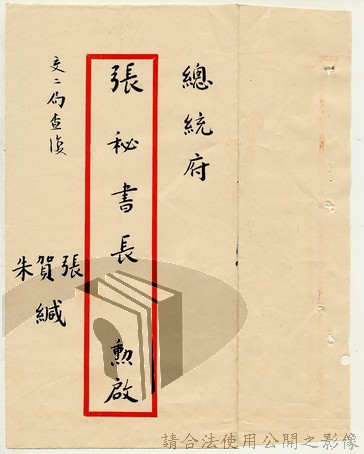 總統府
張秘書長 勳啟
交二局查復
張
賀 緘
朱
請合法使用公開之影像